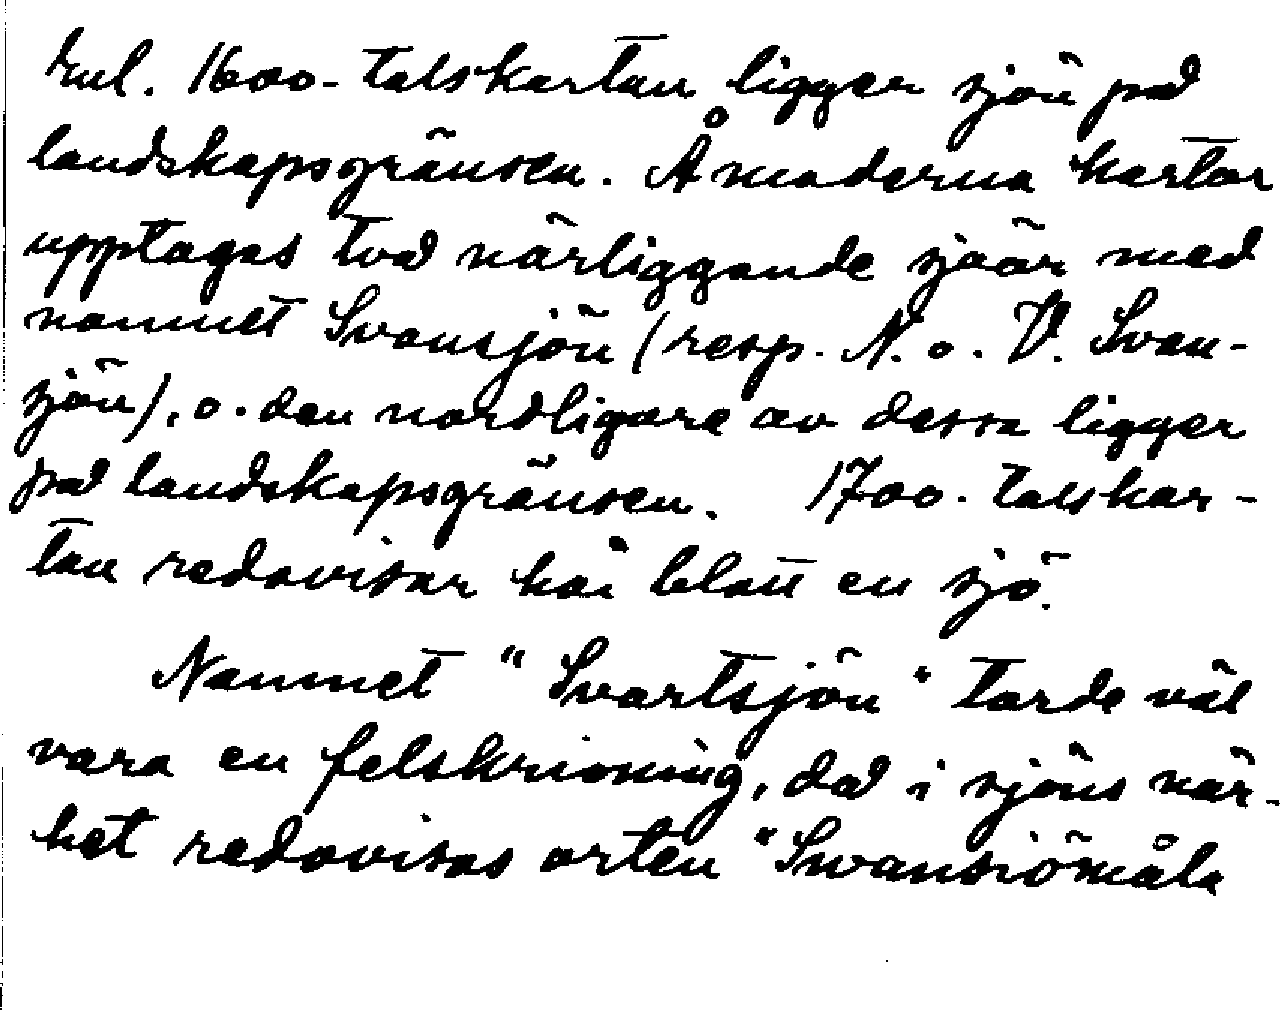 Enl. 1600-talskartan ligger sjön på
landskapsgränsen. Å moderna kartor
upptages två närliggande sjöar med
namnet Svansjön (resp. N. o. V. Svan-
sjön), o. den nordligare av dessa ligger
på landskapsgränsen. 1700-talskar-
tan redovisar här blott en sjö.
Namnet "Svartsjön" torde väl
vara en felskrivning, då i sjöns när-
het redovisas orten "Swansiömåla